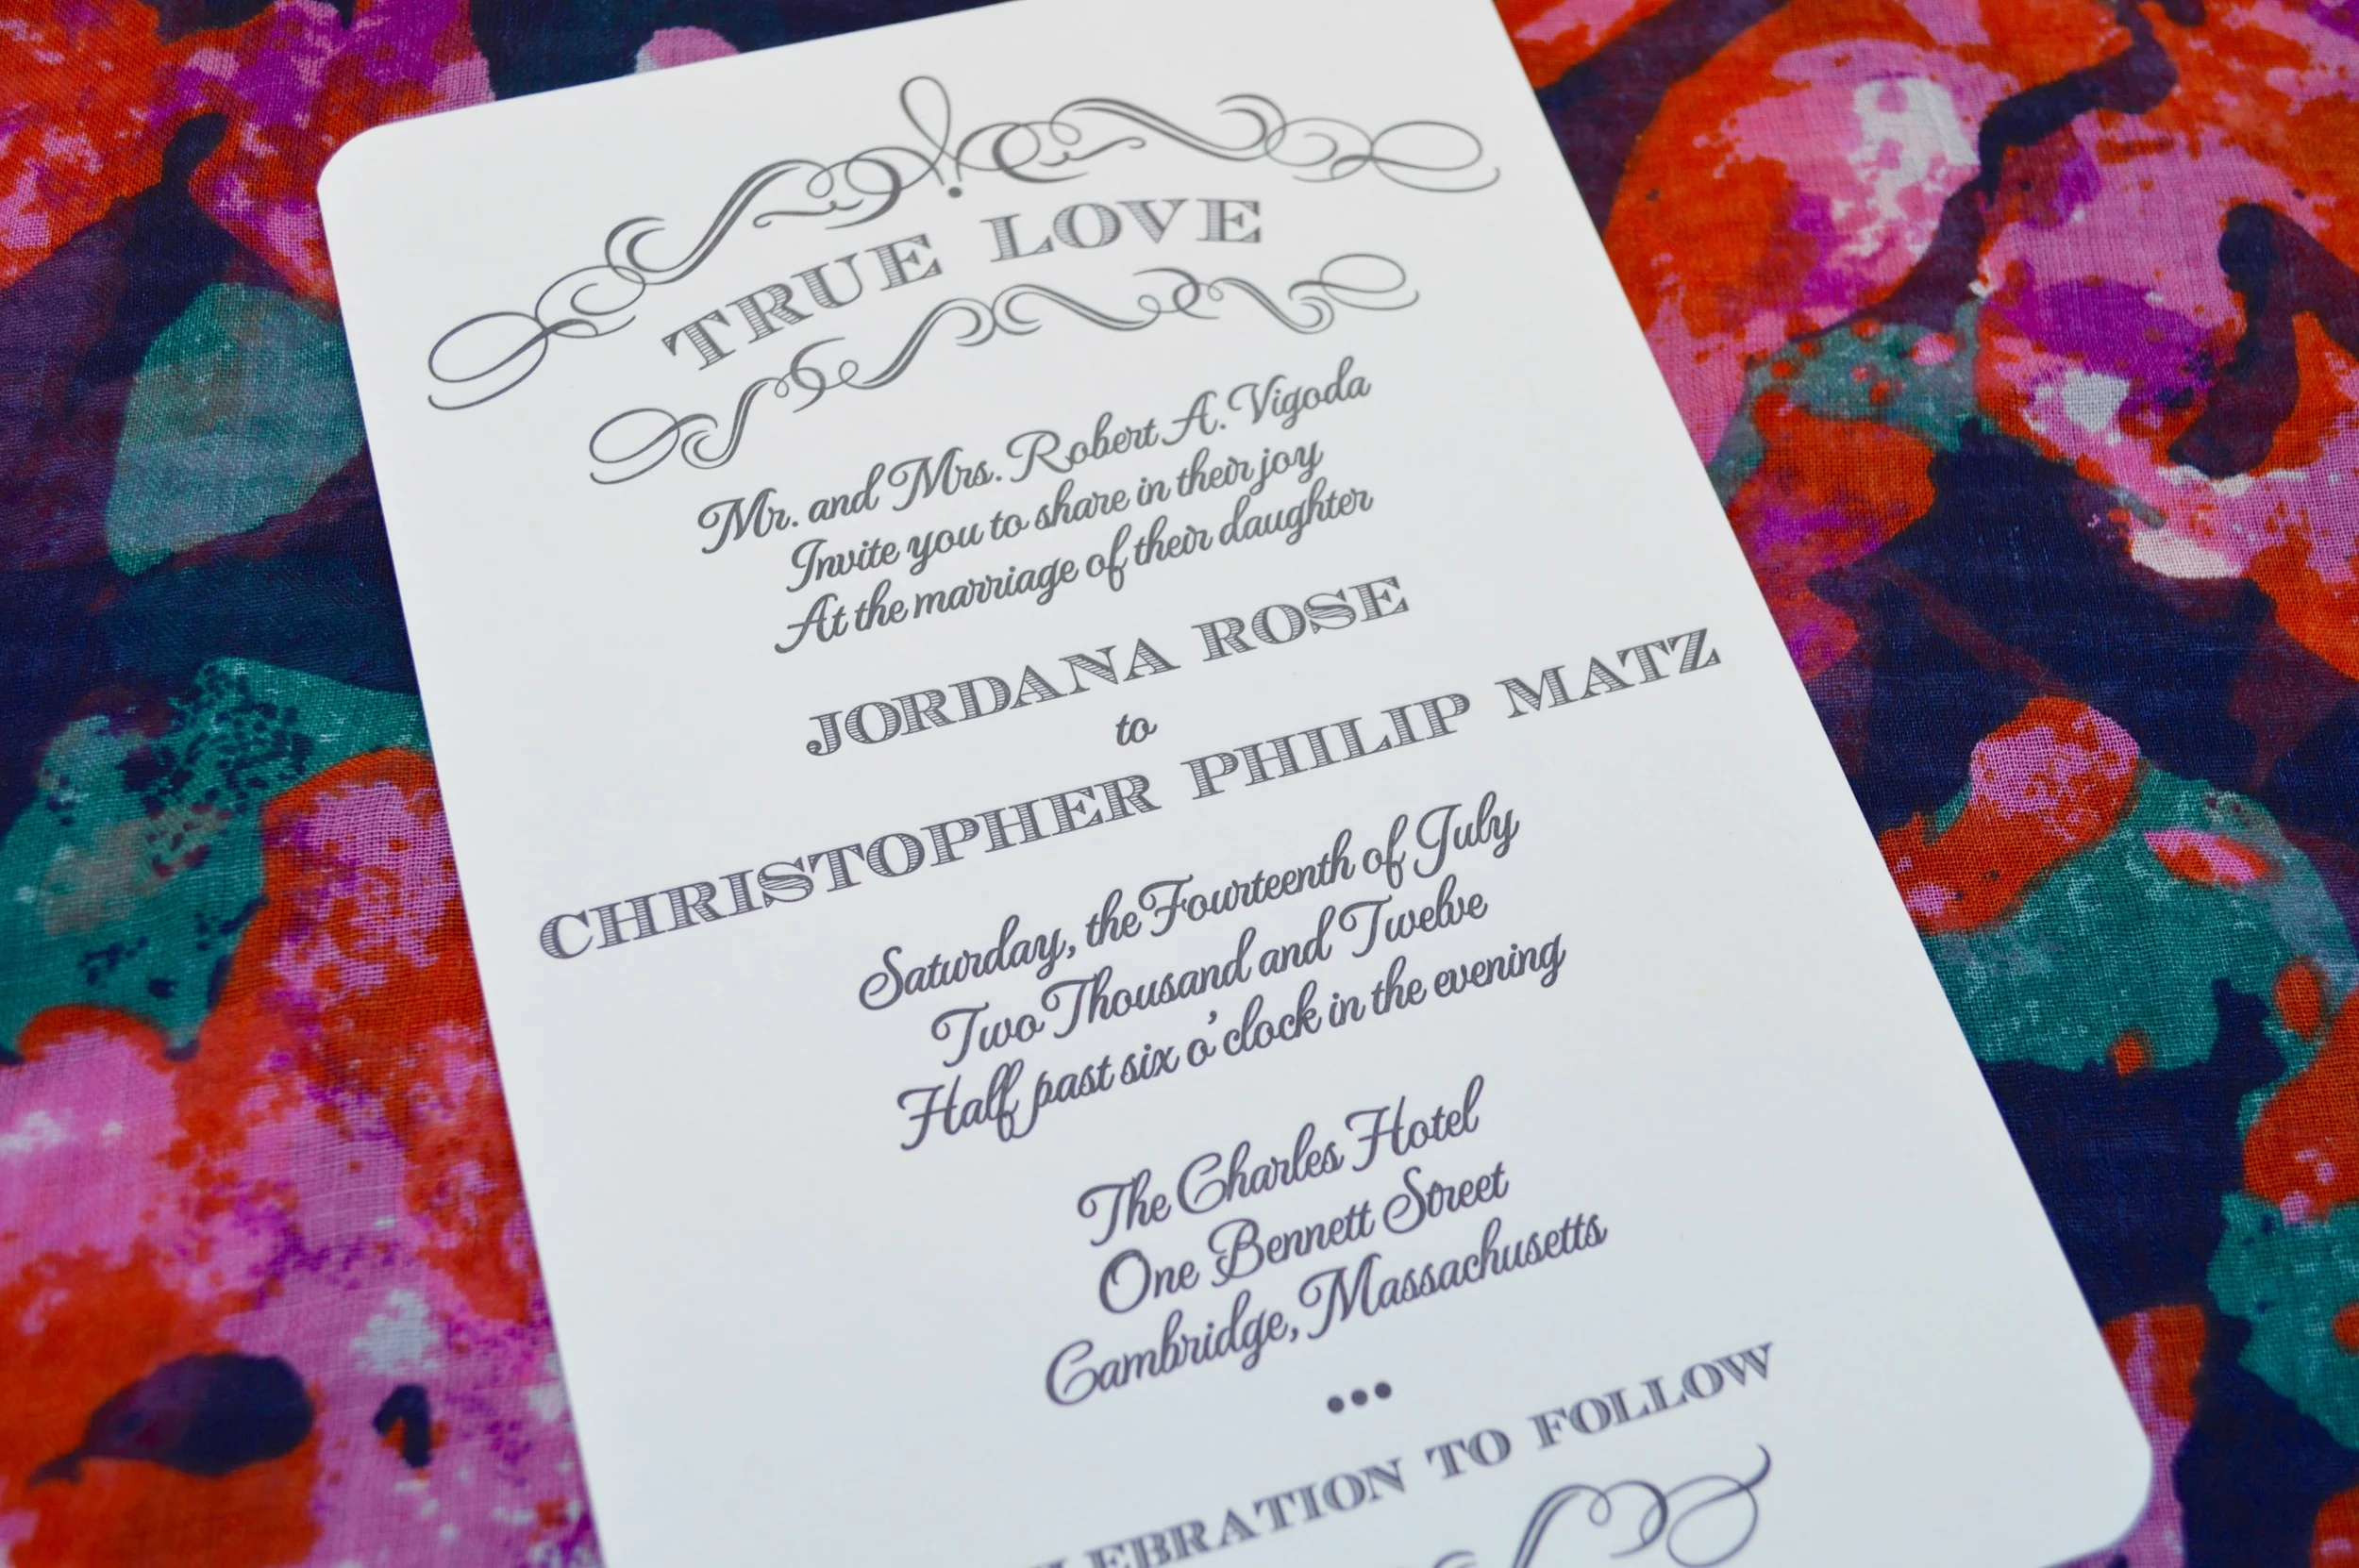 TRUE LOVE
Mr. and Mrs. Robert A. Vigoda
Invite you to share in their joy
At the marriage of their daughter
JORDANA ROSE
to
CHRISTOPHER PHILIP MATZ
Saturday, the Fourteenth of July
Two Thousand and Twelve
Half past six o'clock in the evening
The Charles Hotel
One Bennett Street
Cambridge, Massachusetts
•••
LEBRATION TO FOLLOW